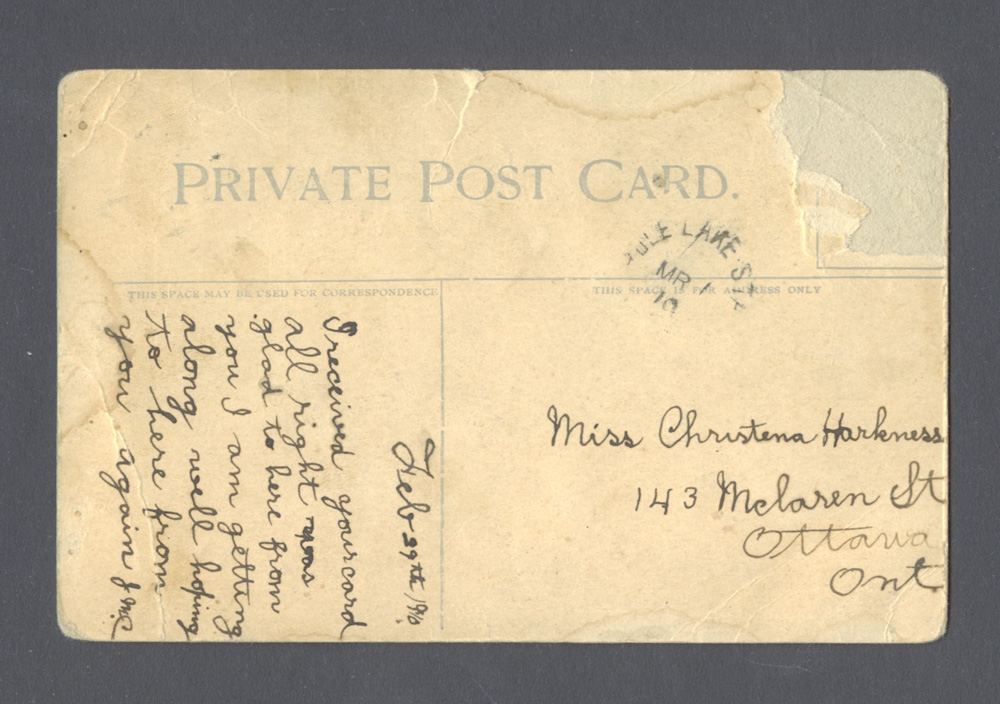 PRIVATE POST CARD.
LAKE
MR 1
10
THIS SPACE MAY BE USED FOR CORRESPONDENCE
THIS SPACE IS FOR ADDRESS ONLY
Feb 29th 1910
I received your card
all right was
glad to here from
you I am getting
along well hoping
to here from
you again
Miss Christena Harkness
143 Mclaren St
Ottawa
Ont